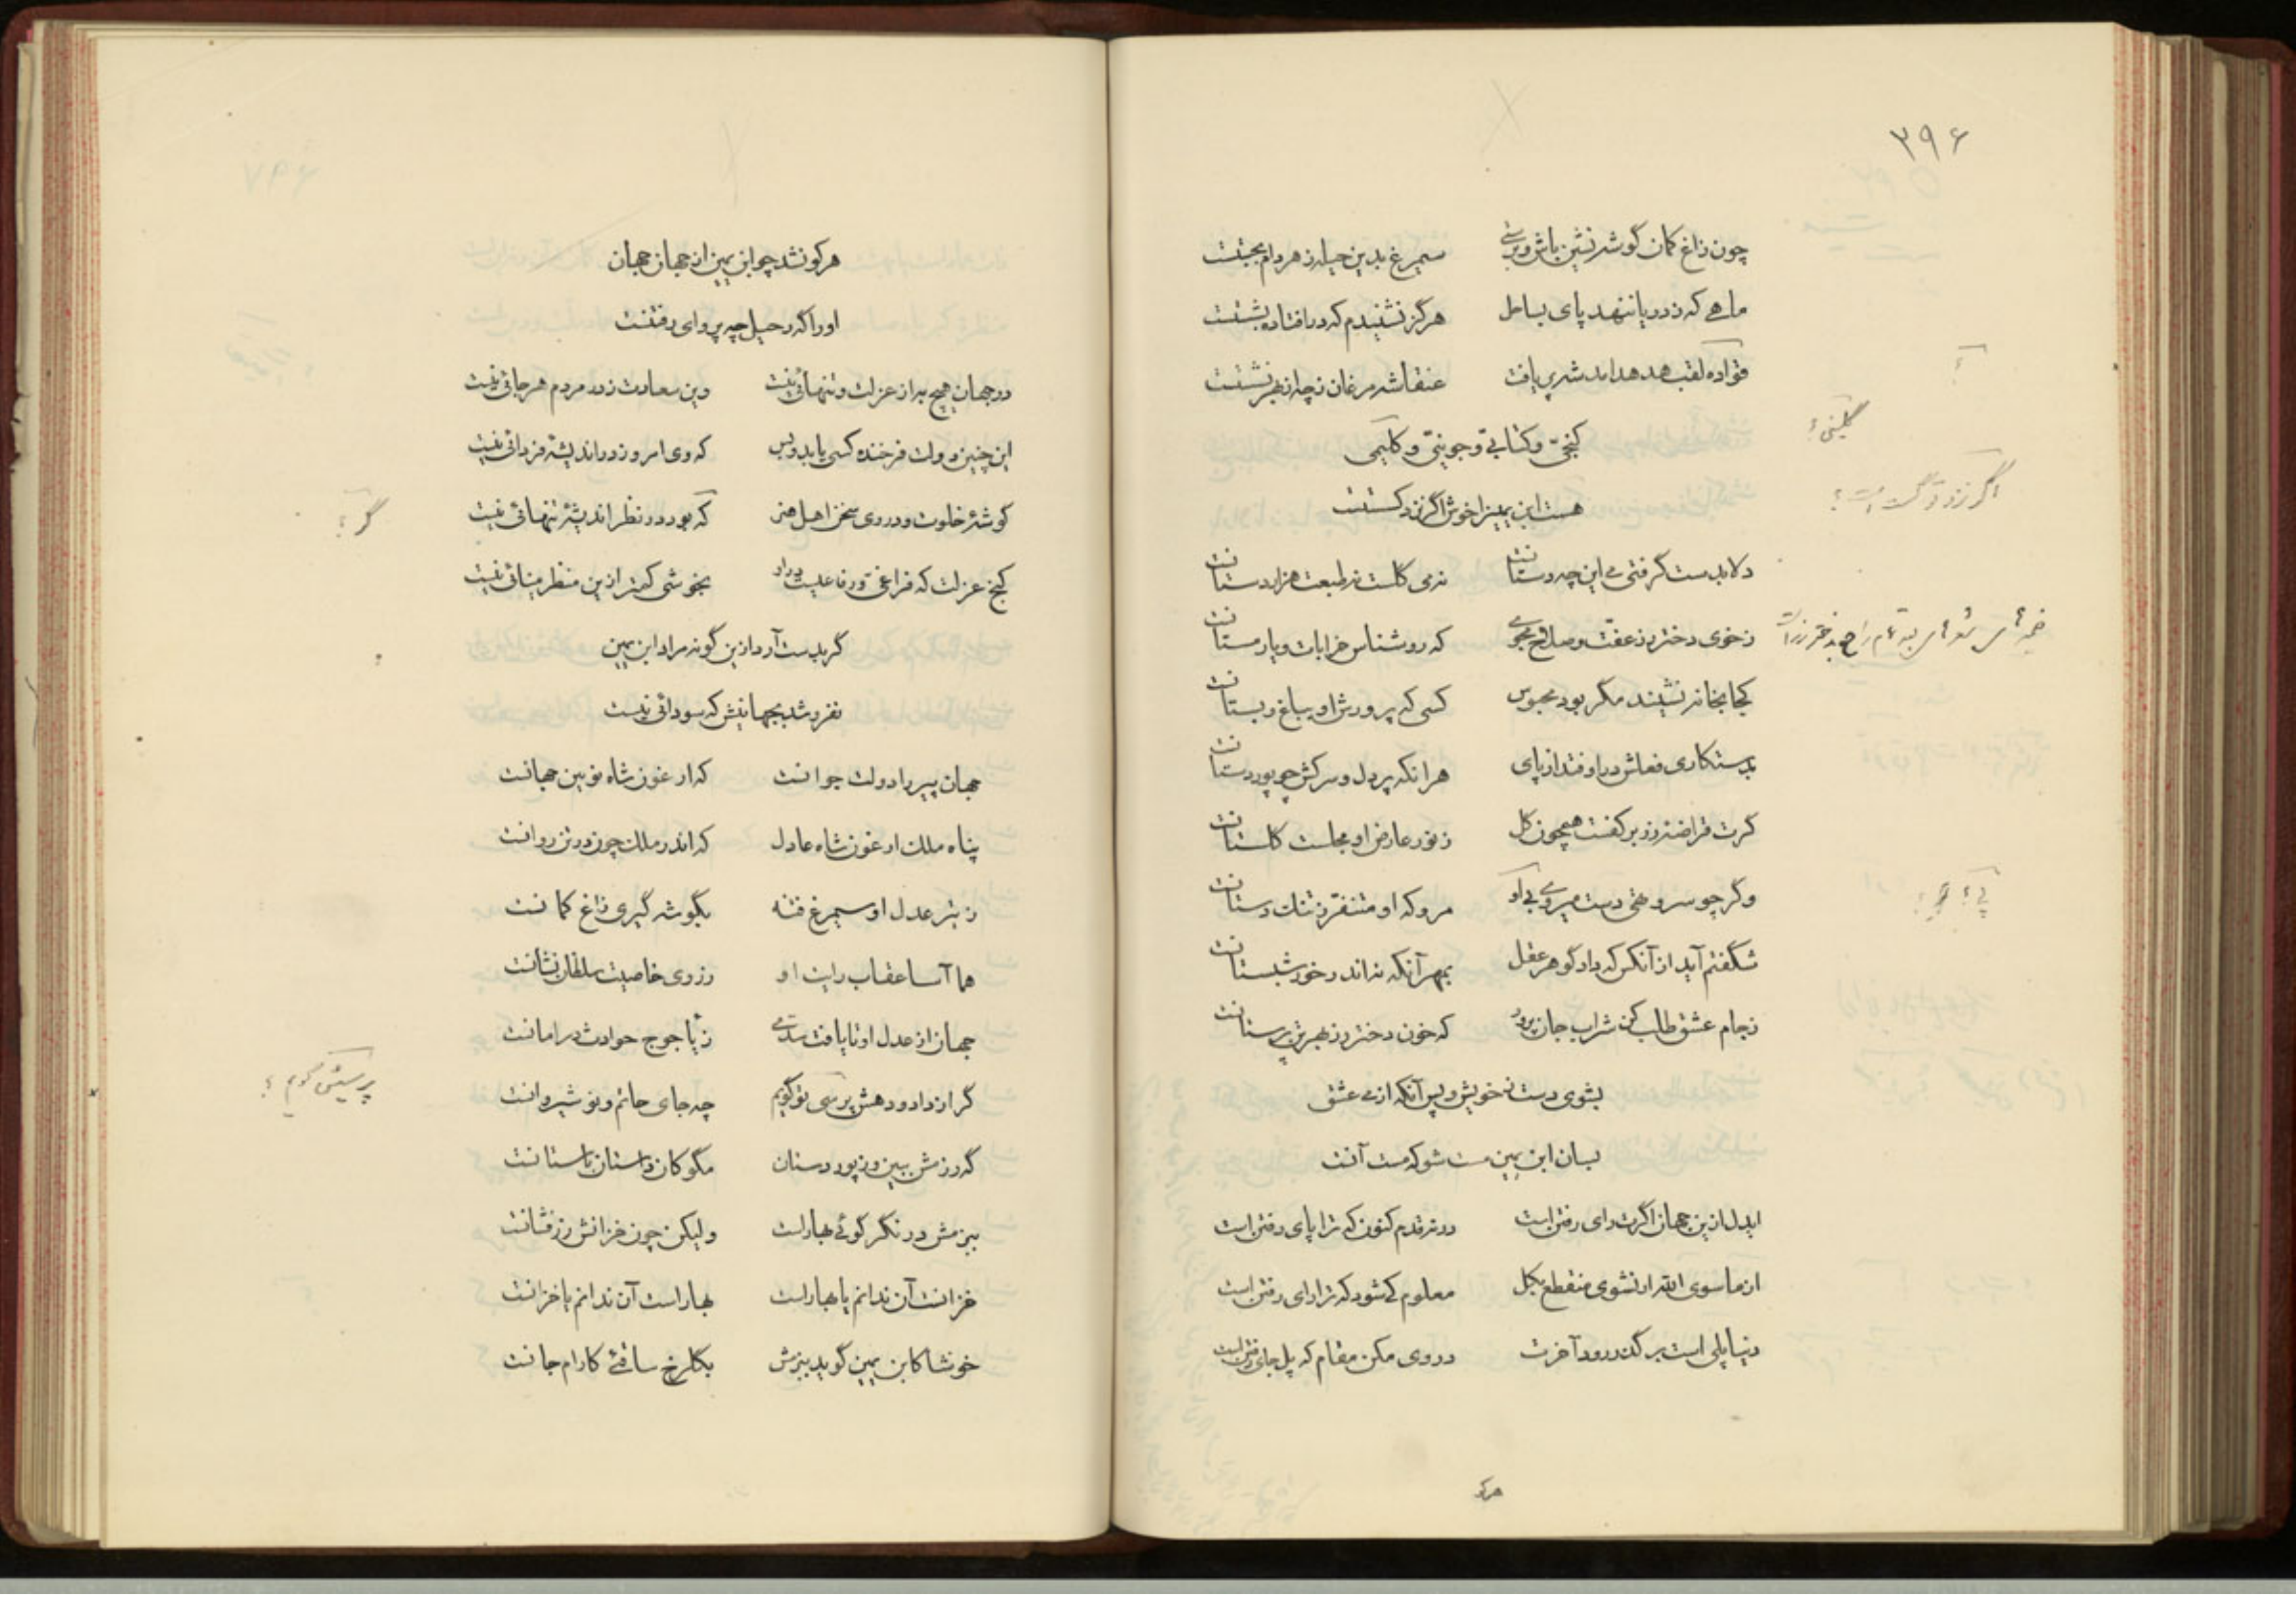 ۳۹۶
چون زاغ کمان گوشه نشین باش و بزی سیمرغ بدین حیله ز هر دام بجستت
ماهی که ز دریا ننهد پای بساحل هرگز نشنیدم که درافتاده بشستت
قواده لقب هدهد ازین در بدری یافت عنقا شه مرغان ز چه از بهر نشستت
کنجی و کتابی و جوینی و کلیمی
کلیمی؟
هست ابن یمین را خوش اگر نزد کستت
دلا بدست گرفتی می این چه دستانت نه می کلست نه طبعت هزاردستانت
ز خوی دختر رز عفت و صلاح مجوی که روشناس خرابات و یار مستانت
کجا بخانه نشیند مگر بود محبوس کسی که پرورش او بباغ و بستانت
بدستکاری فعلش دراوفتد از پای هر انکه پر دل و سرکش چو پور دستانت
گرت قراضه زر بر کفست همچون گل ز نور عارض او مجلست گلستانت
وگر چو سرو تهی دست میروی بر او مرو که او متنفر ز تنگ دستانت
شگفتم آید از آنکس که داد گوهر عقل بمهر آنکه نه اندر خور شبستانت
ز جام عشق طلب کن شراب جان پرور که خون دختر رز بهر بت پرستانت
بشوی دست ز خویش و پس آنگه از می عشق
بسان ابن یمین مست شو که مست آنت
ایدل ازین جهان اگرت رای رفتن است درنه قدم کنون که ترا پای رفتن است
از ما سوی الله ار نشوی منقطع بکل معلوم کی شود که ترا رای رفتن است
دنیا پلی است بر گذر رود آخرت در وی مکن مقام که پل جای رفتن است
هرکو
هرکو نشد چو ابن یمین از جهان جهان
او را که رحیل چه پروای رفتنت
در جهان هیچ به از عزلت و تنهائی نیست وین سعادت ز در مردم هر جائی نیست
این چنین دولت فرخنده کسی یابد و بس که وی امروز در اندیشه فردائی نیست
گوشه خلوت و در وی سخن اهل هنر که بود در نظر اندیشه تنهائی نیست
گر؟
کنج عزلت که فراغی ور فاعلیت دراو بخوشی کمتر ازین منظر مینائی نیست
گر بدست آرد ازین گونه مراد ابن یمین
نفروشد بجهانیش که سودائی نیست
جهان پیر را دولت جوانت که ارغون شاه نوبین جهانت
پناه ملک ارغون شاه عادل که اندر ملک چون در تن روانت
ز تیر عدل او سیمرغ فتنه بگوشه گیری زاغ کمانت
هما آسا عقاب رایت او ز روی خاصیت سلطان نشانت
جهان از عدل او تا یافت سدی ز یاجوج حوادث در امانت
گر از داد و دهش پرسی تو گویم چه جای حاتم و نوشیروانت
پرسیش گویم؟
گه رزمش ببین وز پور دستان مگو کان داستان باستانت
ببزمش در نگر گوئی بهاراست ولیکن چون خزانش زرفشانت
خزانست آن ندانم یا بهاراست بهاراست آن ندانم یا خزانت
خوشا کابن یمین گوید ببزمش بگلرخ ساقئی کارام جانت